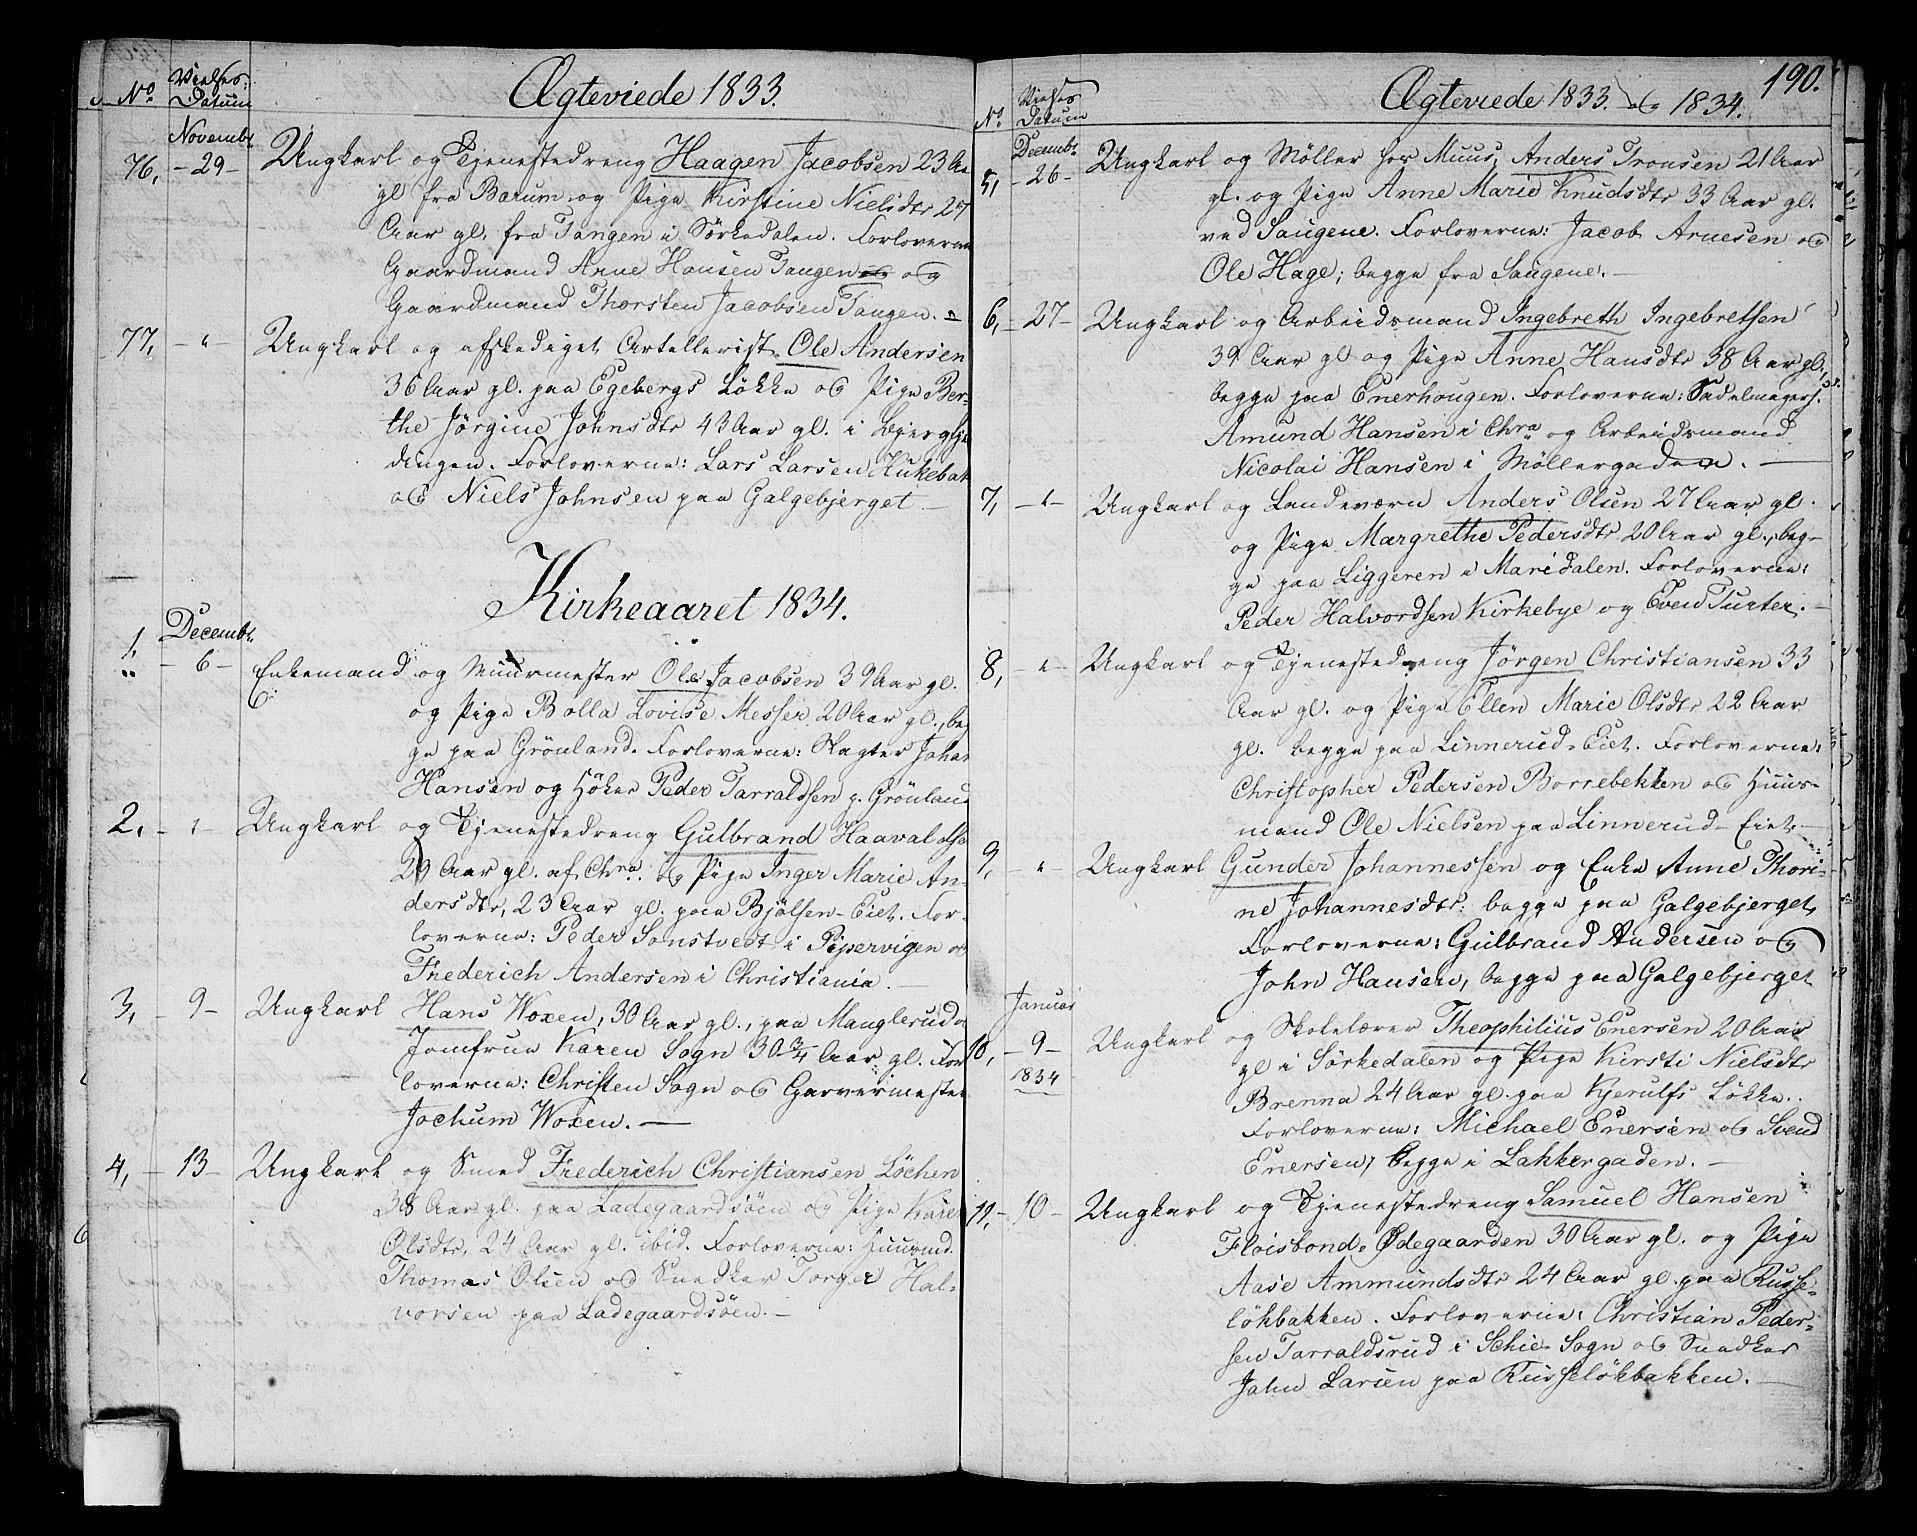 No. Vielses Datum
Ægteviede 1833.
Novembr.
76, - 29 - Ungkarl og Tjenestedreng Haagen Jacobsen 23 Aa
gl fra Barum og Pige Kirstine Nielsdtr 27
Aar gl. fra Tangen i Sörkedalen. Forloverne
Gaardmand Arne Hansen Tangen og
Gaardmand Thorsten Jacobsen Tangen.
77, - " - Ungkarl og afskediget Artellerist Ole Andersen
36 Aar gl. paa Egebergs Løkke og Pige Ber-
the Jörgine Johnsdtr 43 Aar gl. i
dingen. Forloverne: Lars Larsen Hukebak
og Niels Johnsen paa Galgebjerget -
Kirkeaaret 1834.
Decembr.
1, - 6 - Enkemand og Muurmester Ole Jacobsen 39 Aar gl.
og Pige Bolla Lovise Messer 20 Aar gl., be
ge paa Grönland. Forloverne: Slagter Johan
Hansen og Höker Peder Tarraldsen p. Grönland
2, - " - Ungkarl og Tjenestedreng Gulbrand Haavalds
29 Aar gl. af Chra. og Pige Inger Marie An-
dersdtr, 23 Aar gl. paa Bjölsen-Eiet. For-
loverne: Peder Sonstvedt i Pipervigen og
Frederich Andersen i Christiania.
3, - 9 - Ungkarl Hans Woxen, 30 Aar gl., paa Manglerud o
Jomfrue Karen Sogn 30 3/4 Aar gl. For
loverne: Christen Sogn og Garvermester
Jochum Woxen. -
4, - 13 - Ungkarl og Smed Frederich Christiansen Löchen
38 Aar gl. paa Ladegaardsöen og Pige Kare
Olsdtr, 24 Aar gl. ibid. Forloverne: Huusmd.
Thomas Olsen og Snedker Torger Hal-
vorsen paa Ladegaardsöen. -
190.
No. Vielses Datum
Ægteviede 1833. og 1834.
Decembr.
5, - 26 - Ungkarl og Möller hos Muus, Anders Tronsen 21 Aar
gl. og Pige Anne Marie Knudsdtr 33 Aar gl.
ved Saugene. Forloverne: Jacob Arnesen og
Ole Hage; begge fra Saugene. -
6, - 27 - Ungkarl og Arbeidsmand Ingebreth Ingebretsen
39 Aar gl og Pige Anne Hansdtr 38 Aar gl.,
begge paa Enerhougen. Forloverne: Sadelmagers.
Amund Hansen i Chra og Arbeidsmand
Nicolai Hansen i Möllergaden. -
7, - " - Ungkarl og Landeværn Anders Olsen 27 Aar gl.
og Pige Margrethe Pedersdtr 20 Aar gl., beg-
ge paa Liggeren i Maridalen. Forloverne:
Peder Halvordsen Kirkebye og Even Turter. -
8, - " - Ungkarl og Tjenestedreng Jörgen Christiansen 33
Aar gl. og Pige Ellen Marie Olsdtr 22 Aar
gl. begge paa Linnerud-Eiet. Forloverne:
Christopher Pedersen Borrebekken og Huus-
mand Ole Nielsen paa Linnerud-Eiet -
9, - " - Ungkarl Gunder Johannessen og Enke Anne Thori-
ne Johannesdtr: begge paa Galgebjerget,
Forloverne: Gulbrand Andersen og
John Hansen, begge paa Galgebjerget
Januar
10, - 9 - Ungkarl og Skolelærer Theophilius Enersen 20 Aar
1834
gl i Sörkedalen og Pige Kirsti Nielsdtr
Brenna 24 Aar gl. paa Kjerulfs Løkke.
Forloverne: Michael Enersen og Svend
Enersen, begge i Lakkergaden. -
11, - 10 - Ungkarl og Tjenestedreng Samuel Hansen
Floisbond-Ödegaarden 30 Aar gl. og Pige
Aase Ammundsdtr 24 Aar gl. paa Russe-
lökbakken. Forloverne: Christian Peder-
sen Tarraldsrud i Schie-Sogn og Snedker
John Larsen paa Russelökbakken. -